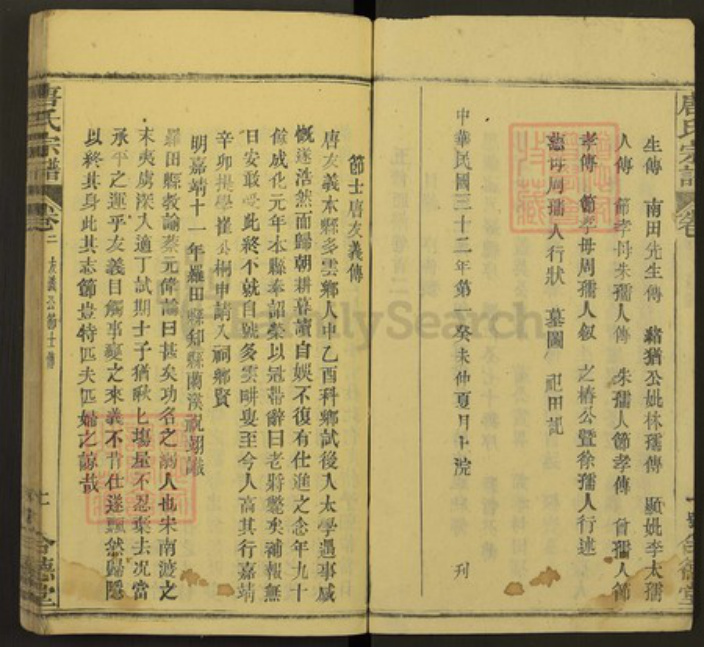 唐氏宗譜
生傳 南田先生傳 猪猶公妣林孺傳 顯妣李太孺
人傳 節孝母朱孺人傳 朱孺人節孝傳 曾孺人節
孝傳 節孝母周孺人叙 之椿公暨徐孺人行述
慈母周孺人行狀 墓圖 祀田記
中華民國三十二年 癸未仲夏月 浣 刊
合德堂
節士唐友義傳
唐友義本縣多雲鄉人中乙酉科鄉試後入太學遇事感
慨遂浩然而歸朝耕暮讀自娛不復有仕進之念年九十
餘成化元年本縣奉詔榮以冠帶辭曰老將斃矣補報無
日安敢受此終不就自號多雲畊叟至今人高其行嘉靖
辛卯提學崔公桐申請入祠鄉賢
明嘉靖十一年羅田縣知縣蘭溪祝翊
羅田縣教諭蔡元偉論曰甚矣功名之溺人也宋南渡之
末夷虜深入適丁試期士子猶秋匕場屋不忍棄去况當
承平之運乎友義目觸事變之來義不肯仕遂飄然歸隱
以終其身此其志節豈特匹夫匹婦之諒哉
唐氏宗譜
卷二 友義公節士傳
合德堂
FamilySearch